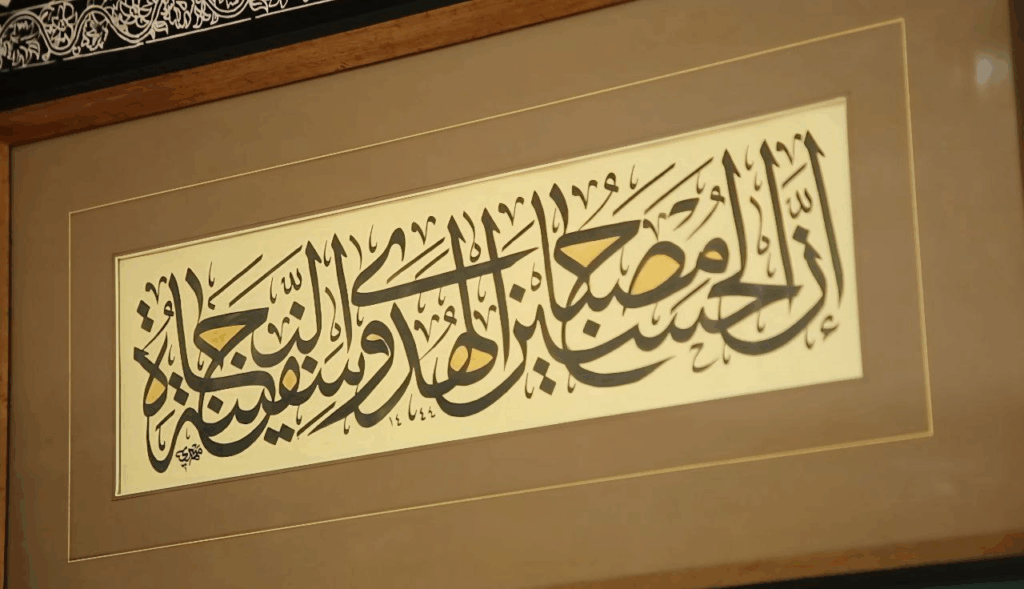 إنَّ الحسين مصباح الهدى وسفينة النّجاة
١٤٤٤